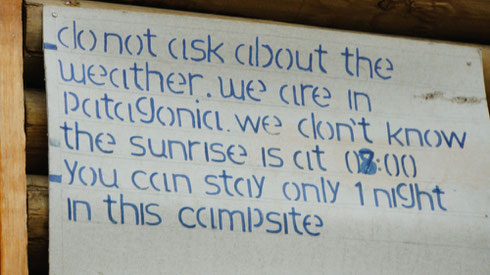 do not ask about the
weather. we are in
patagonia. we don't know
the sunrise is at 08:00
you can stay only 1 night
in this campsite